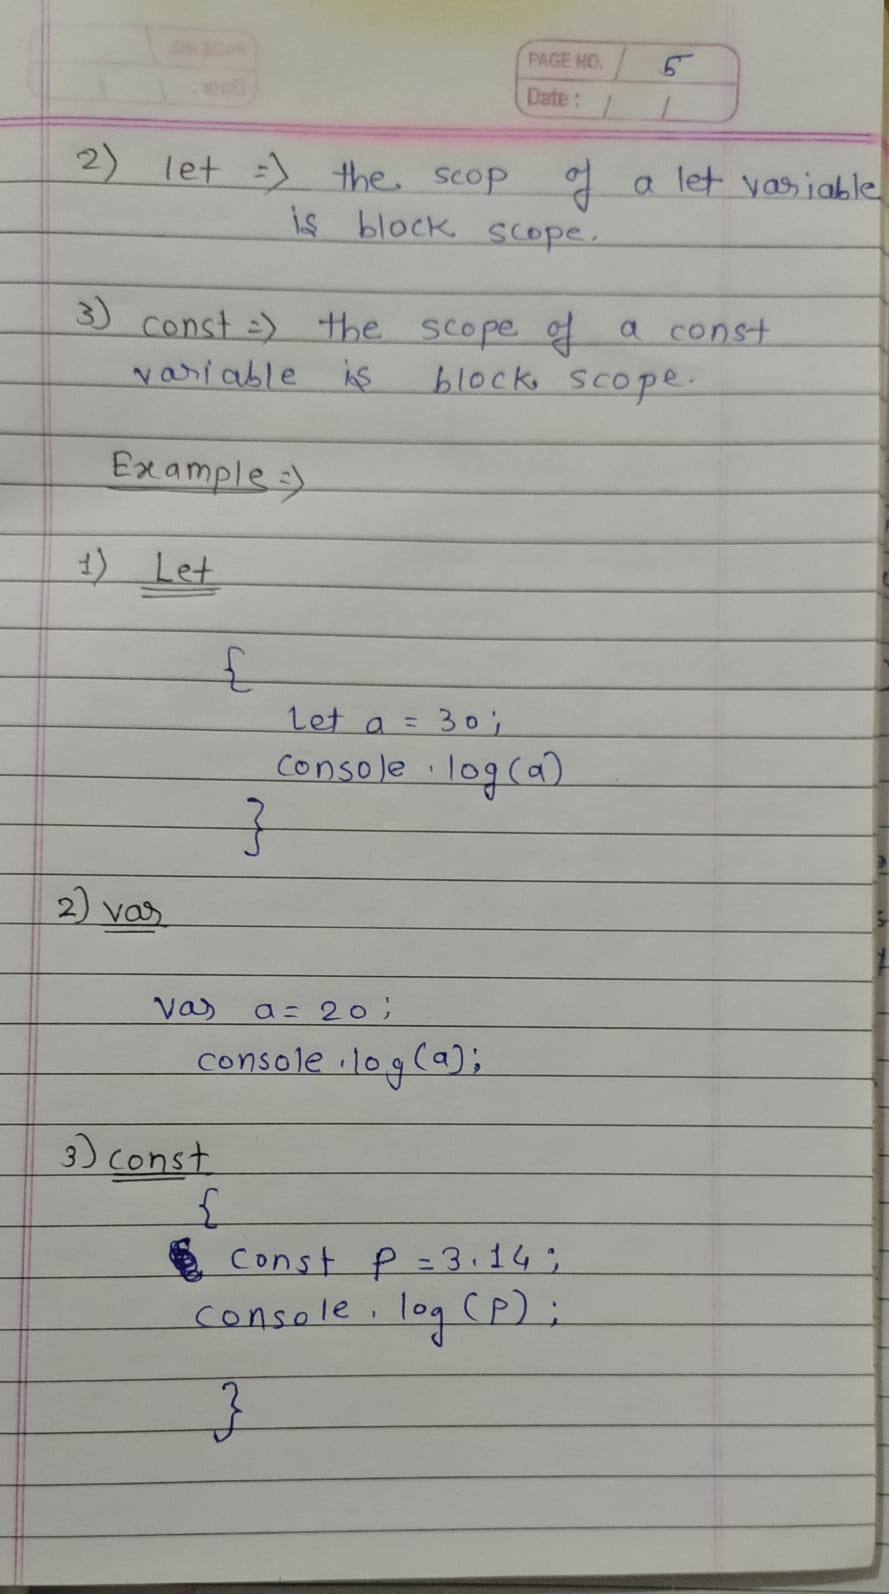 PAGE NO. 5
Date : / /
2) let => the scop of a let variable
is block scope.
3) const => the scope of a const
variable is block scope.
Example =>
1) Let
{
Let a = 30;
console.log(a)
}
2) var
var a = 20;
console.log(a);
3) const
{
const p = 3.14;
console.log(p);
}